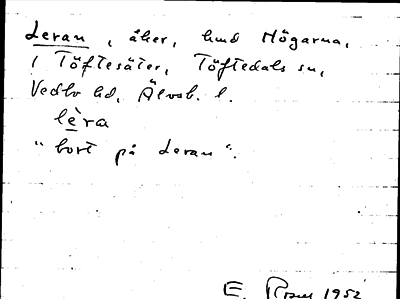 Leran, åker, hmd Högarna,
i Töftesäter, Töftedals sn,
Vedbo hd, Älvsb. l.
lèra
"bort på Leran".
E. Rosell 1952